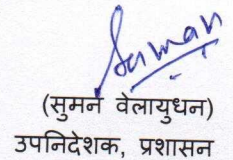 Suman
(सुमन वेलायुधन)
उपनिदेशक, प्रशासन